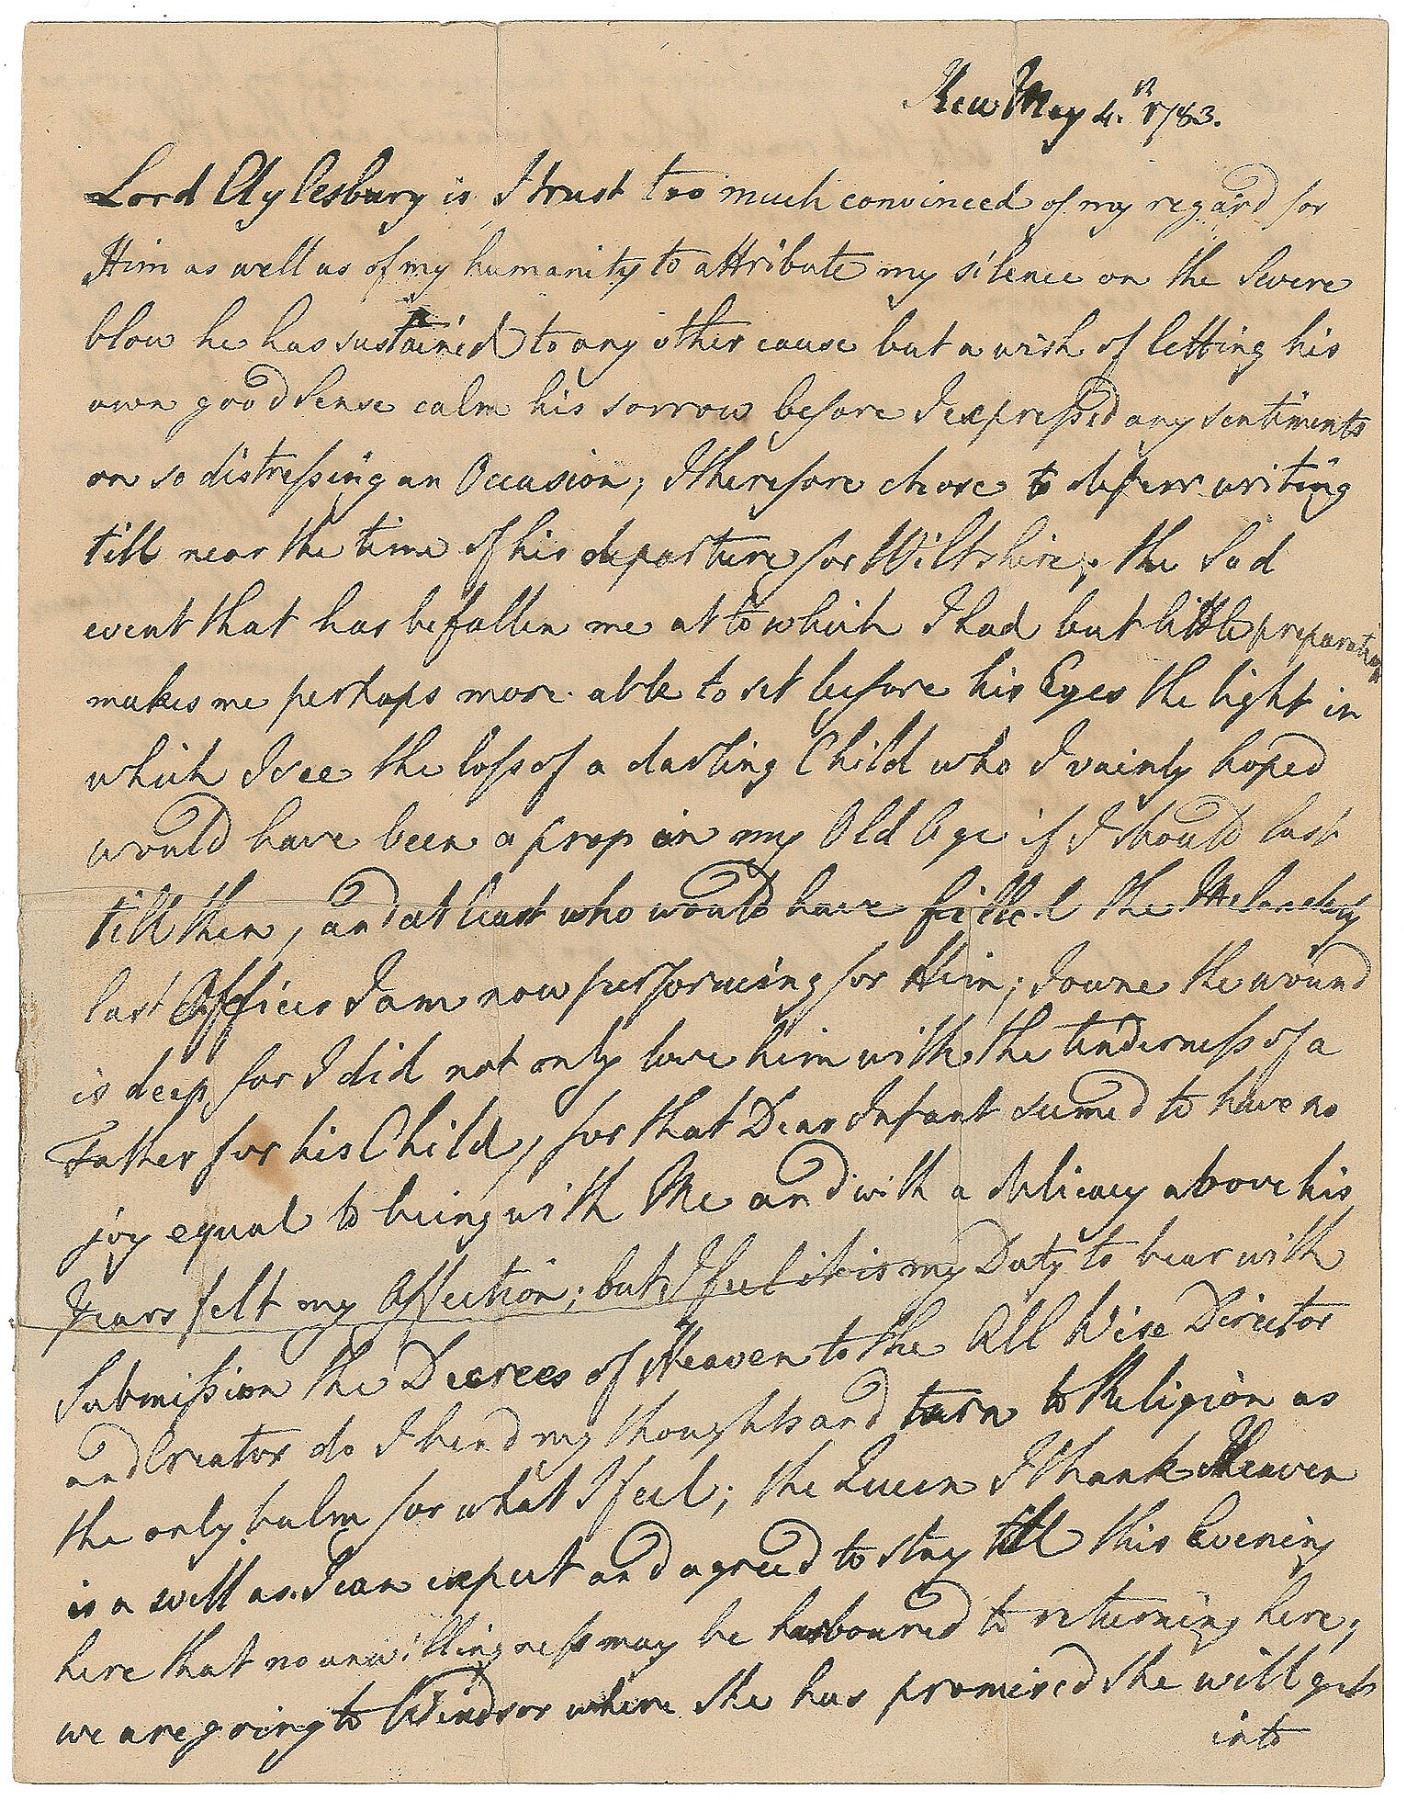 Kew May 4.th 1783.
Lord Aylesbury is I trust too much convinced of my regard for
Him as well as of my humanity to attribute my silence on the severe
blow he has sustained to any other cause but a wish of letting his
own good sense calm his sorrow before I expressed any sentiments
on so distressing an Occasion; I therefore chose to deferr writing
till near the time of his departure for Wiltshire; the sad
event that has befallen me at to which I had but little preparation
makes me perhaps more able to set before his Eyes the light in
which I see the loss of a darling Child who I vainly hoped
would have been a prop in my Old Age if I should last
till then, and at least who would have filled the Melancholy
last Offices I am now performing for Him; I owne the wound
is deep, for I did not only love him with the tenderness of a
Father for his Child, for that Dear Infant seemed to have no
joy equal to being with Me and with a delicacy above his
Years felt my Affection; but I feel it is my Duty to bear with
Submission the Decrees of Heaven to the All Wise Director
and Creator do I bend my thoughts and turn to Religion as
the only balm for what I feel; the Queen I thank Heaven
is a well as I can expect and agreed to stay till this Evening
here that no unwillingness may be harboured to returning here;
we are going to Windsor where she has promised she will get
into